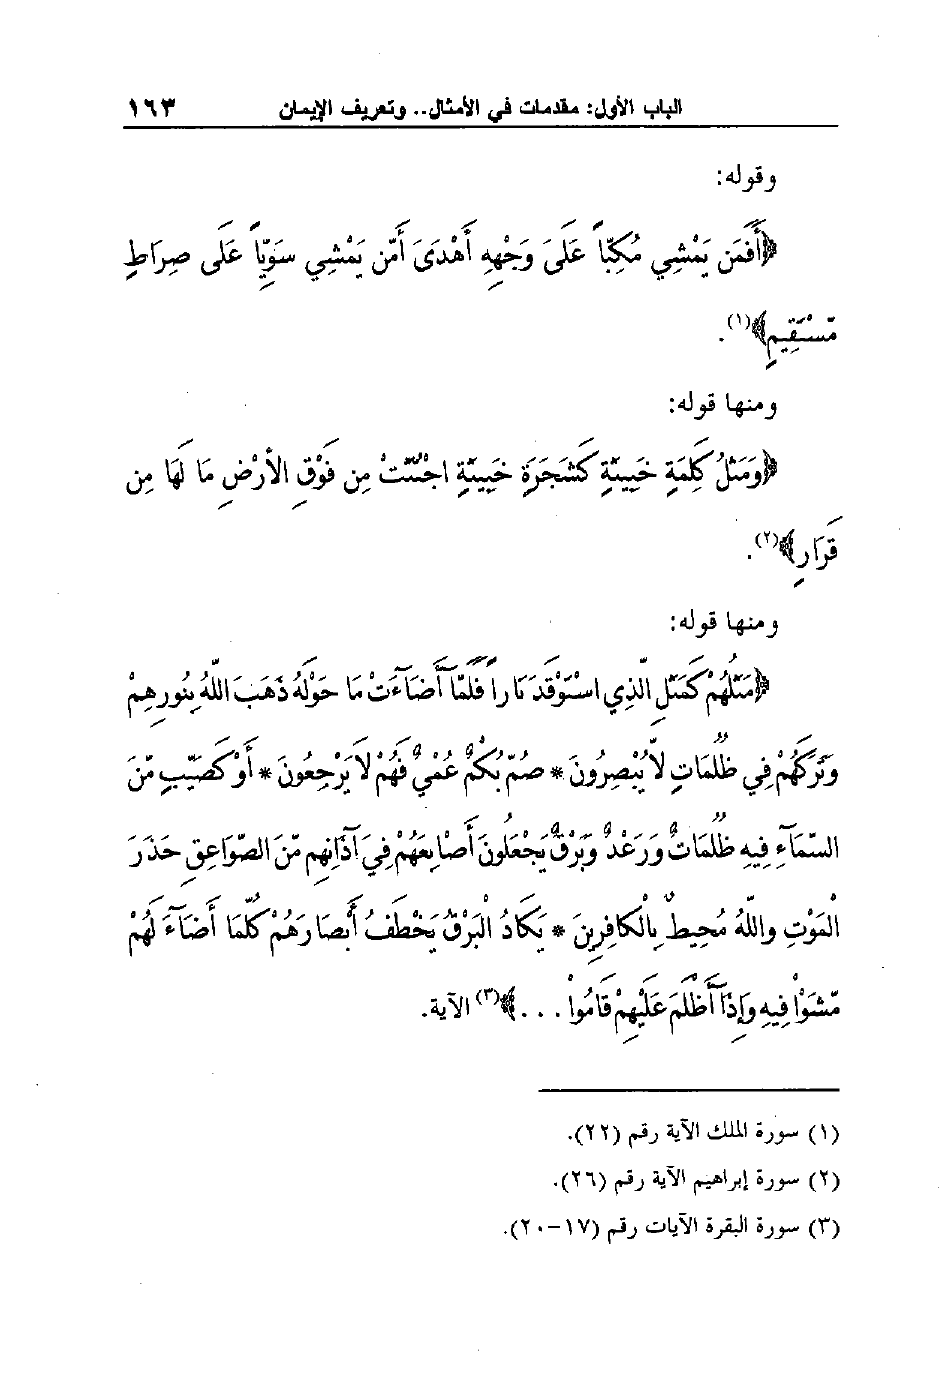 الباب الأول: مقدمات في الأمثال.. وتعريف الإيمان ١٦٣
وقوله:
﴿أَفَمَن يَمْشِي مُكِبّاً عَلَىَ وَجْهِهِ أَهْدَىَ أَمّن يَمْشِي سَوِيّاً عَلَى صِرَاطٍ
مّسْتَقِيمٍ﴾(١).
ومنها قوله:
﴿وَمَثلُ كَلِمَةٍ خَبِيثَةٍ كَشَجَرَةٍ خَبِيثَةٍ اجْتُثّتْ مِن فَوْقِ الأرْضِ مَا لَهَا مِن
قَرَارٍ﴾(٢).
ومنها قوله:
﴿مَثَلُهُمْ كَمَثَلِ الّذِي اسْتَوْقَدَ نَاراً فَلَمّآ أَضَاءَتْ مَا حَوْلَهُ ذَهَبَ اللّهُ بِنُورِهِمْ
وَتَرَكَهُمْ فِي ظُلُمَاتٍ لاّ يُبْصِرُونَ * صُمّ بُكْمٌ عُمْيٌ فَهُمْ لاَ يَرْجِعُونَ * أَوْ كَصَيّبٍ مّنَ
السّمَآءِ فِيهِ ظُلُمَاتٌ وَرَعْدٌ وَبَرْقٌ يَجْعَلُونَ أَصْابِعَهُمْ فِيَ آذَانِهِم مّنَ الصّوَاعِقِ حَذَرَ
الْمَوْتِ واللّهُ مُحِيطٌ بِالْكافِرِينَ * يَكَادُ الْبَرْقُ يَخْطَفُ أَبْصَارَهُمْ كُلّمَا أَضَآءَ لَهُمْ
مّشَوْاْ فِيهِ وَإِذَآ أَظْلَمَ عَلَيْهِمْ قَامُواْ . . .﴾(٣) الآية.
(١) سورة الملك الآية رقم (٢٢).
(٢) سورة إبراهيم الآية رقم (٢٦).
(٣) سورة البقرة الآيات رقم (١٧-٢٠).